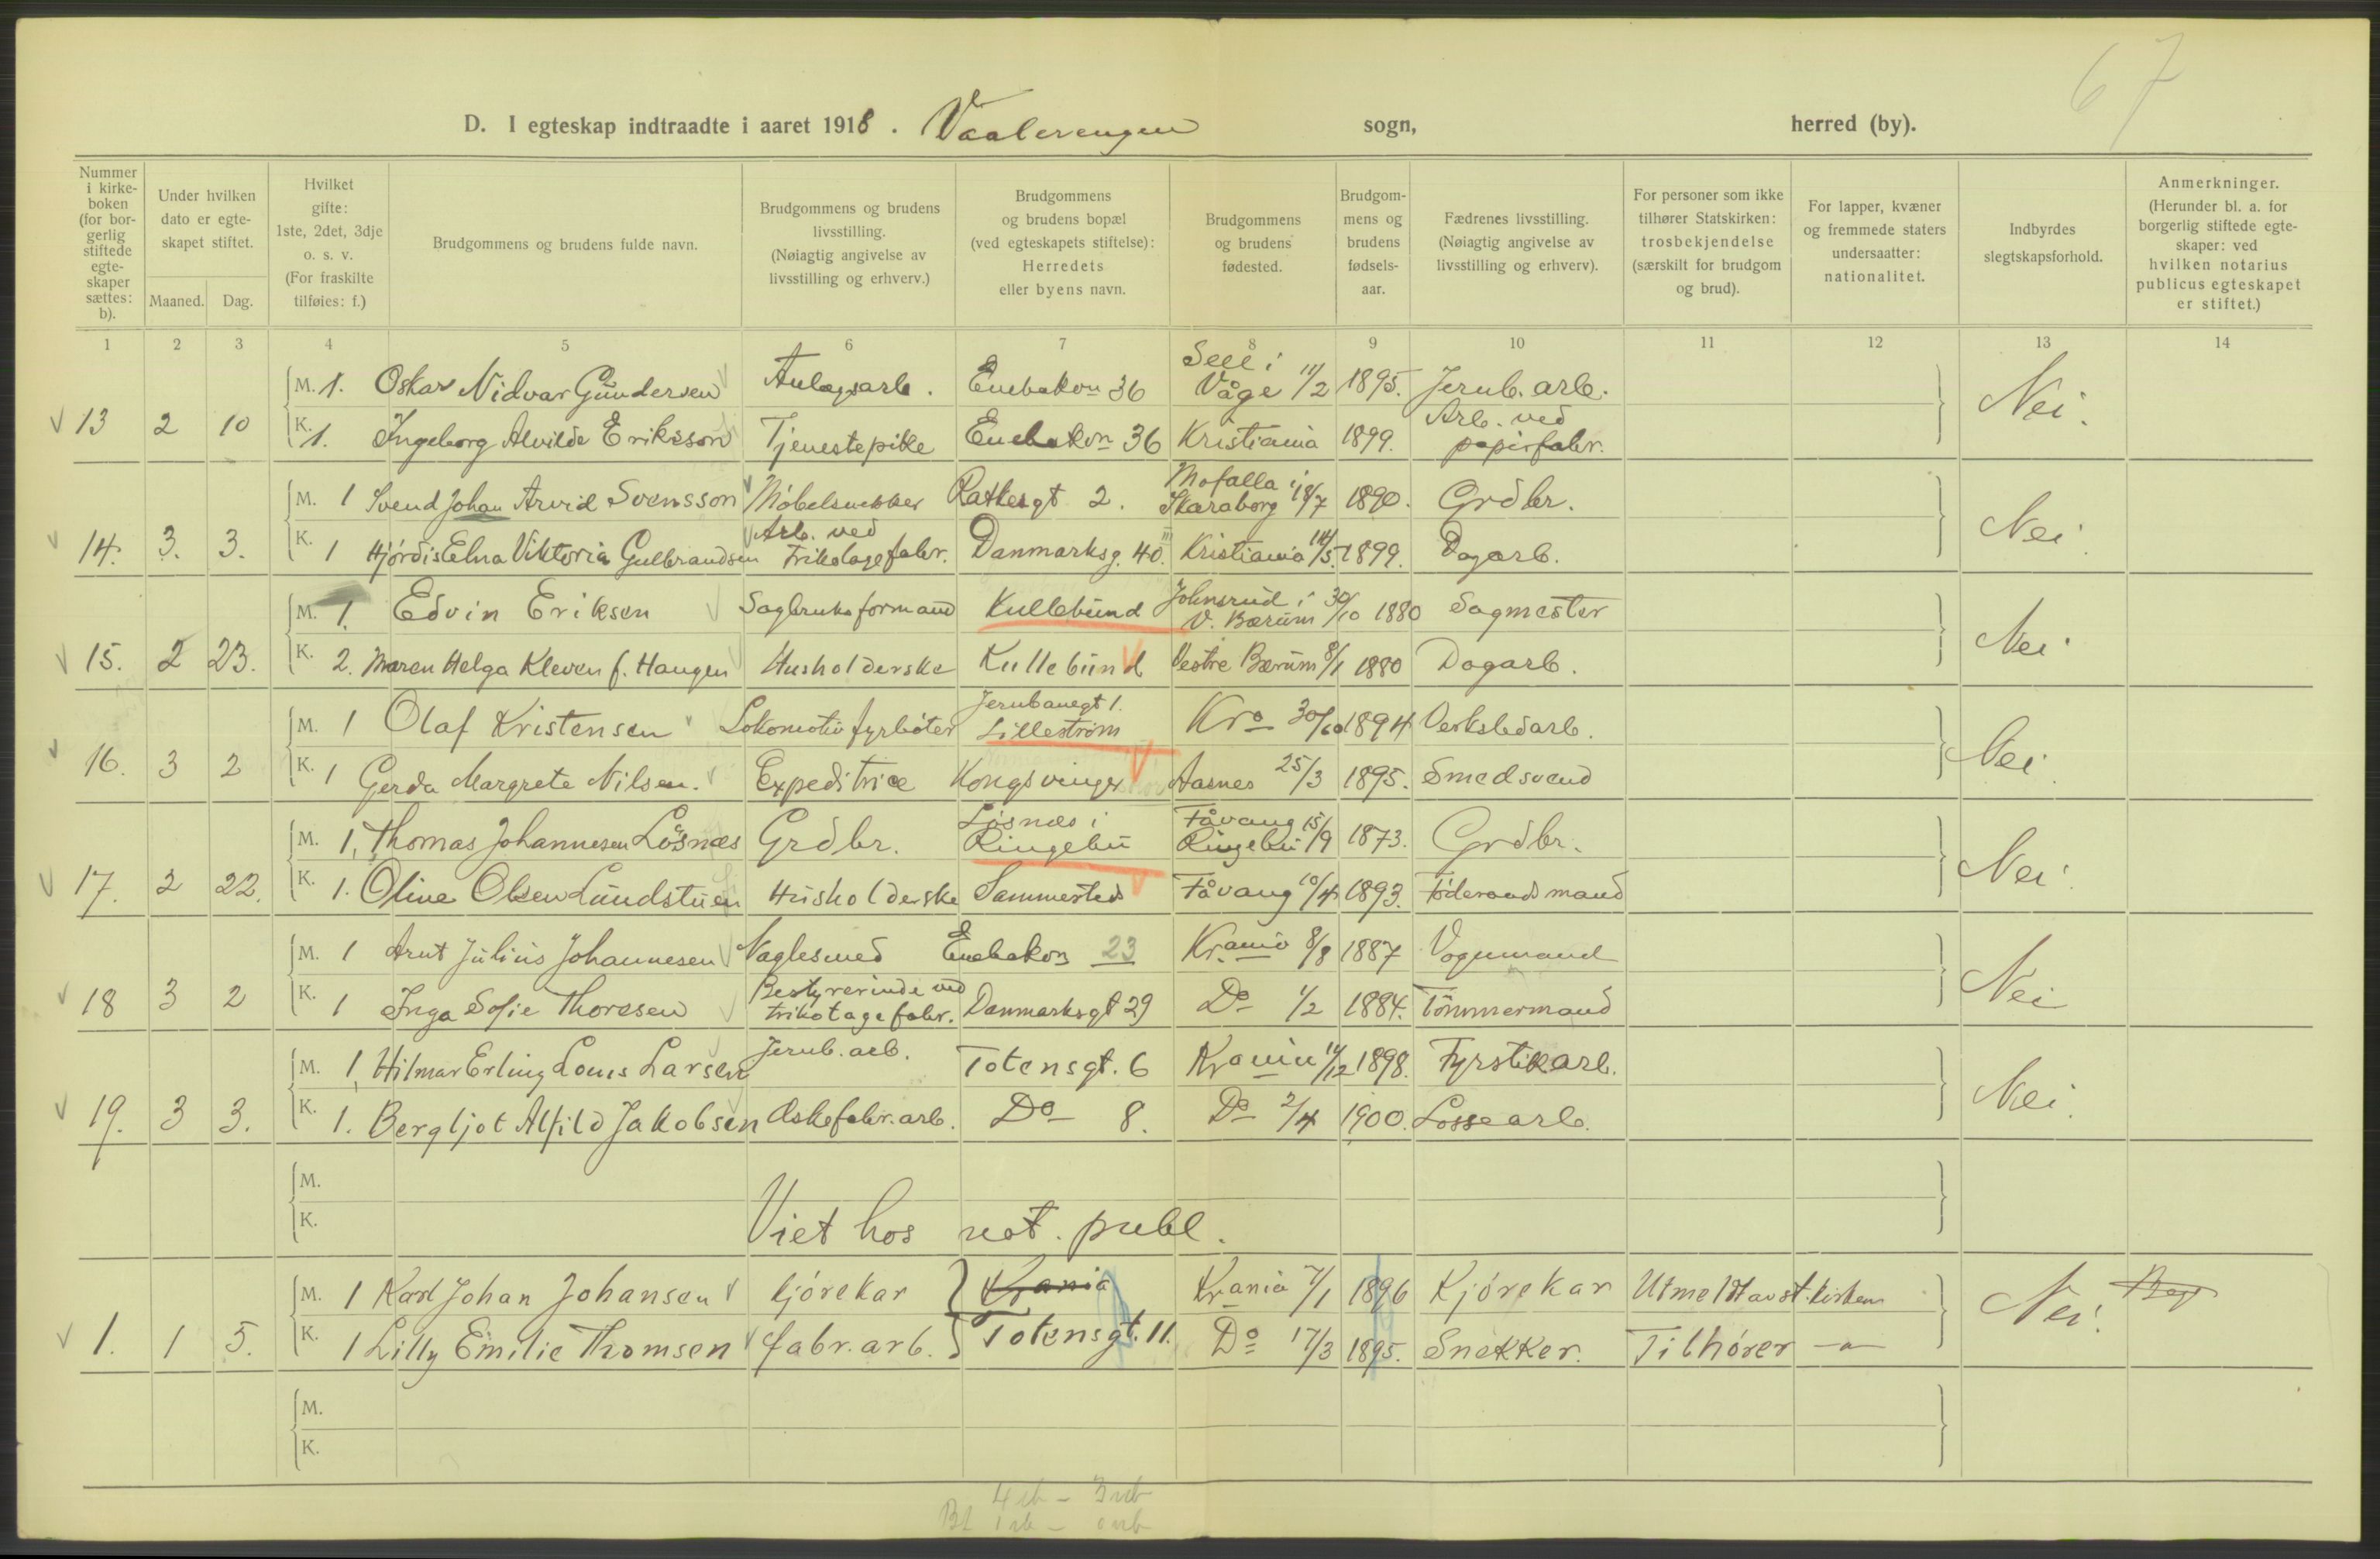 67
D. I egteskap indtraadte i aaret 1918. Vaalerengen sogn, herred (by).
Nummer i kirkeboken (for borgerlig stiftede egteskaper sættes: b).
Under hvilken dato er egteskapet stiftet.
Maaned. Dag.
Hvilket gifte: 1ste, 2det, 3dje o. s. v. (For fraskilte tilføies: f.)
Brudgommens og brudens fulde navn.
Brudgommens og brudens livsstilling. (Nøiagtig angivelse av livsstilling og erhverv.)
Brudgommens og brudens bopæl (ved egteskapets stiftelse): Herredets eller byens navn.
Brudgommens og brudens fødested.
Brudgommens og brudens fødselsaar.
Fædrenes livsstilling. (Nøiagtig angivelse av livsstilling og erhverv).
For personer som ikke tilhører Statskirken: trosbekjendelse (særskilt for brudgom og brud).
For lapper, kvæner og fremmede staters undersaatter: nationalitet.
Indbyrdes slegtskapsforhold.
Anmerkninger. (Herunder bl. a. for borgerlig stiftede egteskaper: ved hvilken notarius publicus egteskapet er stiftet.)
1 2 3 4 5 6 7 8 9 10 11 12 13 14
M. 1. Oskar Nidvar Gundersen Anlægsarb. Enebakvn 36 Sell i Våge 11/2 1895. Jernb. arb. Nei.
13 2 10 K. 1. Ingeborg Alvilde Eriksson Tjenestepike Enebakvn 36 Kristiania 1899. Arb. ved papirfabr.
M. 1 Svend Johan Arvid Svensson Møbelsnekker Ratkesgt 2. Mofalla i Skaraborg 18/7 1890. Grdbr. Nei.
14. 3. 3. K. 1 Hjørdis Elna Viktoria Gulbrandsen Arb. ved Trikotagefabr. Danmarksg. 40 III Kristiania 14/5 1899. Dagarb.
M. 1. Edvin Eriksen Sagbruksformand Kullebund Johnsrud i V. Bærum 30/10 1880 Sagmester Nei
15. 2 23. K. 2. Maren Helga Kleven f. Haugen Husholderske Kullebund Vestre Bærum 8/1 1880 Dagarb.
M. 1 Olaf Kristensen Lokomotivfyrbøter Jernbanegt 1. Lillestrøm Kra 30/10 1894 Verkstedarb. Nei.
16. 3 2 K. 1 Gerda Margrete Nilsen. Expeditrice Kongsvinger Aasnes 25/3 1895. Smedsvend
M. 1. Thomas Johannesen Løsnæs Grdbr. Løsnæs i Ringebu Fåvang Ringebu 15/9 1873. Grdbr. Nei.
17. 2 22. K. 1. Oline Olsen Lundstuen Husholderske Sammesteds Fåvang 10/4 1893. Føderaadsmand
M. 1 Arnt Julius Johannesen Naglesmed Enebakvn 23 Krania 8/8 1887 Vognmand Nei
18 3 2 K. 1 Inga Sofie Thoresen Bestyrerinde ved trikotagefabr. Danmarksgt 29 Do 1/2 1884. Tømmermand
M. 1. Hilmar Erling Louis Larsen Jernb. arb. Totensgt. 6 Krania 14/12 1898. Fyrstikarb. Nei.
19. 3 3. K. 1. Bergljot Alfild Jakobsen Æskefabr. arb. Do 8. Do 2/4 1900. Lossearb.
M.
K. Viet hos not. publ.
M. 1 Karl Johan Johansen kjørekar Krania Krania 7/1 1896 Kjørekar Utmeldt av st. kirken Nei.
1. 1 5. K. 1 Lilly Emilie Thomsen fabr. arb. Totensgt. 11. Do 17/3 1895. Snekker. Tilhører —"—
M.
K.